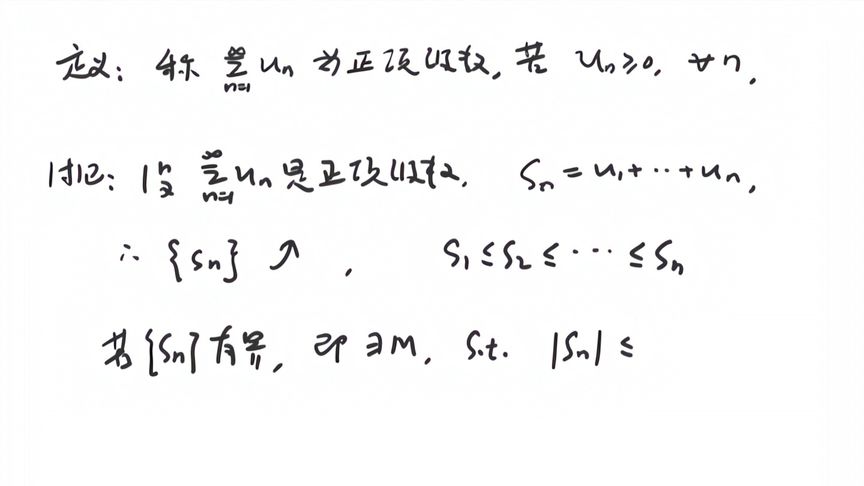 定义: 称 ∑_{n=1}^{∞} u_n 为正项级数, 若 u_n ≥ 0, ∀n,
讨论: 设 ∑_{n=1}^{∞} u_n 是正项级数, S_n = u_1 + ‥ + u_n,
∴ {S_n} ↗, S_1 ≤ S_2 ≤ ⋯ ≤ S_n
若 {S_n} 有界, 即 ∃M, s.t. |S_n| ≤